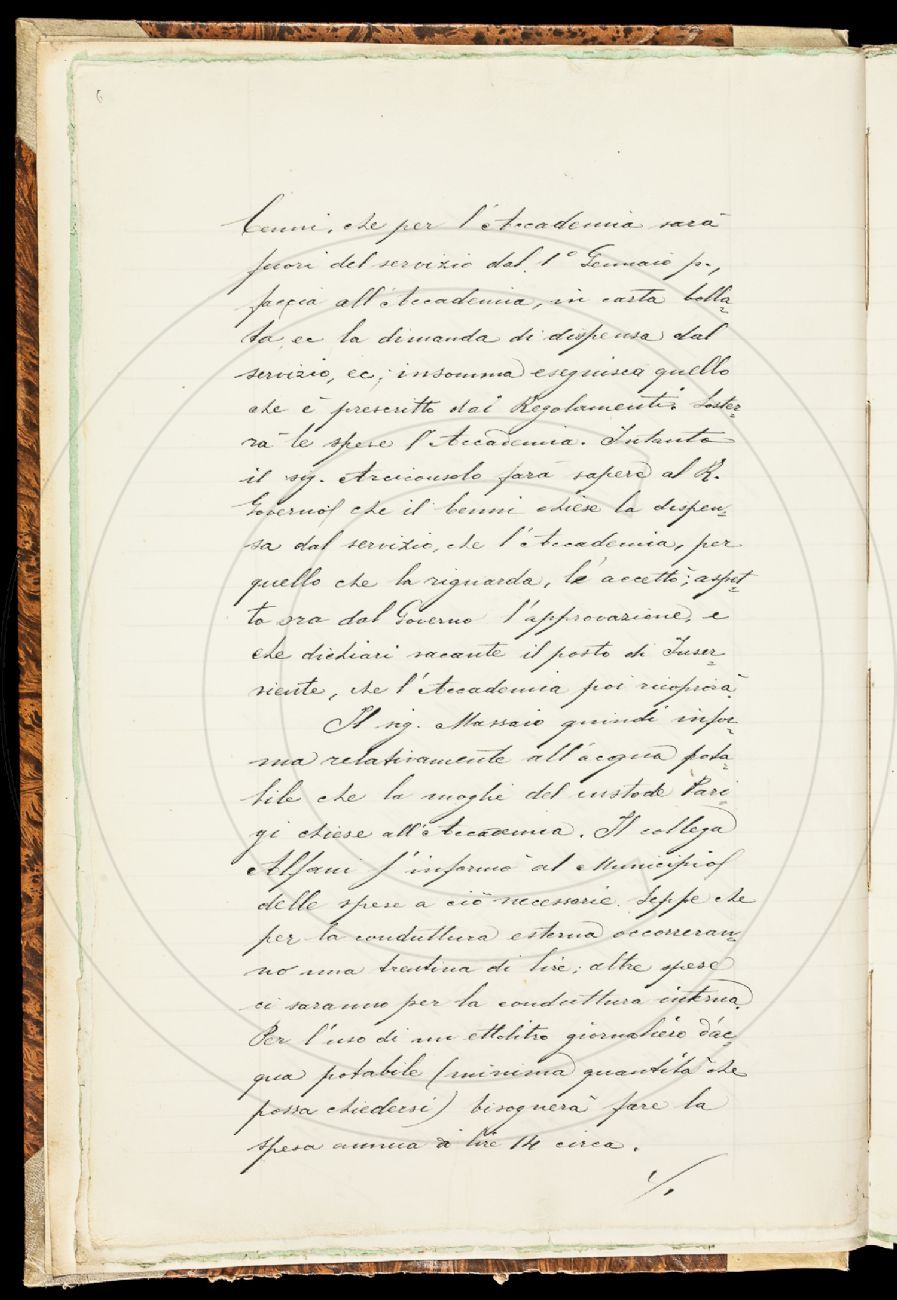 6
Cenni, che per l'Accademia sarà
fuori del servizio dal 1° Gennaio p.,
faccia all'Accademia, in carta bolla=
ta, ec la dimanda di dispensa dal
servizio, ec; insomma eseguisca quello
che è prescritto dai Regolamenti. Soster=
rà le spese l'Accademia. Intanto
il sig. Arciconsolo farà sapere al R.
Governo che il Cenni chiese la dispen=
sa dal servizio, che l'Accademia, per
quello che la riguarda, l'accettò; aspet=
ta ora dal Governo l'approvazione, e
che dichiari vacante il posto di Inser=
viente, che l'Accademia poi ricoprirà.
Il sig. Massaio quindi infor=
ma relativamente all'acqua pota=
bile che la moglie del custode Pari=
gi chiese all'Accademia. Il collega
Alfani s'informò al Municipio
delle spese a ciò necessarie. Seppe che
per la conduttura esterna occorreran=
no una trentina di lire; altre spese
ci saranno per la conduttura interna.
Per l'uso di un ettolitro giornaliero d'ac=
qua potabile (minima quantità che
possa chiedersi) bisognerà fare la
spesa annua di lire 14 circa.
./.